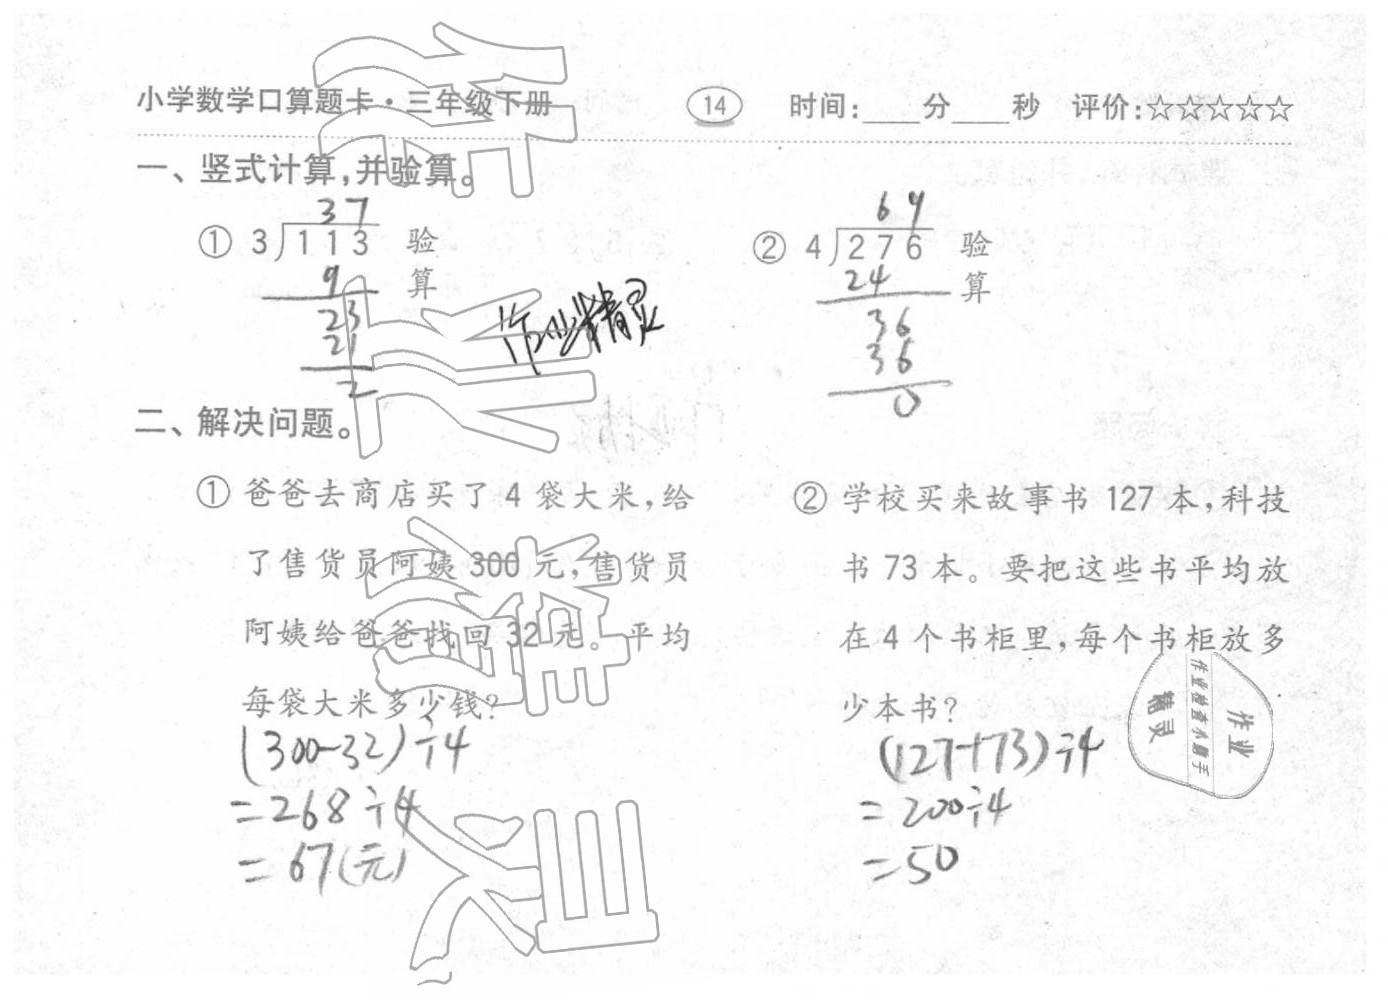 小学数学口算题卡·三年级下册 14 时间:____分____秒 评价:☆☆☆☆☆
一、竖式计算,并验算。
37
① 3)113 验
9 算
23
21
2
69
② 4)276 验
24 算
36
36
0
作业精灵
二、解决问题。
① 爸爸去商店买了 4 袋大米,给
了售货员阿姨 300 元,售货员
阿姨给爸爸找回 32 元。平均
每袋大米多少钱?
(300-32)÷4
=268÷4
=67(元)
② 学校买来故事书 127 本,科技
书 73 本。要把这些书平均放
在 4 个书柜里,每个书柜放多
少本书?
(127+73)÷4
=200÷4
=50
作业
作业检查小助手
精灵
作业精灵